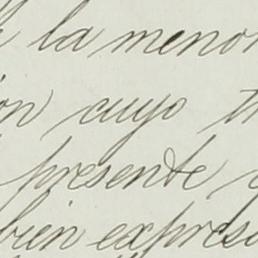 la menor
ón cuyo
presente
bien expres